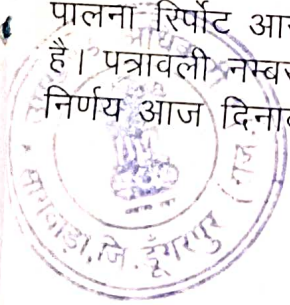 पालना रिर्पोट आ
है। पत्रावली नम्व
निर्णय आज दिना
सागवाडा, जि. डूँगरपुर (राज.)